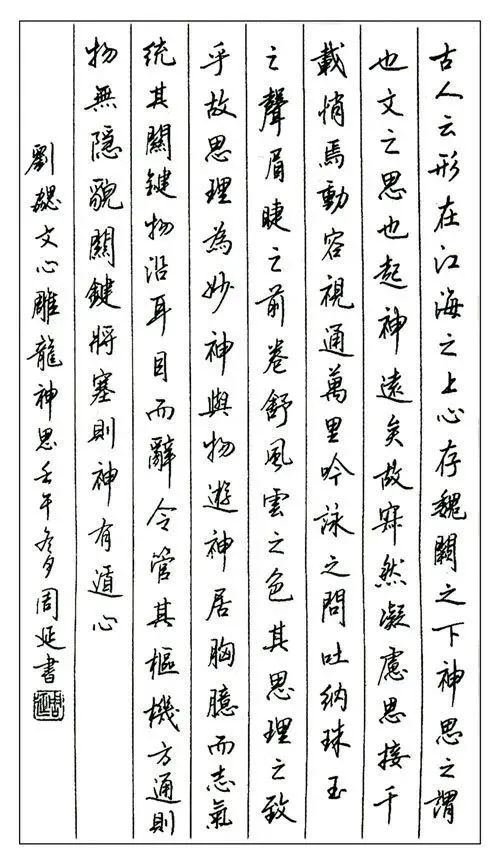 古人云形在江海之上心存魏闕之下神思之謂
也文之思也起神遠矣故寂然凝慮思接千
載悄焉動容視通萬里吟詠之間吐納珠玉
之聲眉睫之前卷舒風雲之色其思理之致
乎故思理為妙神與物遊神居胸臆而志氣
統其關鍵物沿耳目而辭令管其樞機方通則
物無隱貌關鍵將塞則神有遁心
劉勰文心雕龍神思壬午冬夕周延書